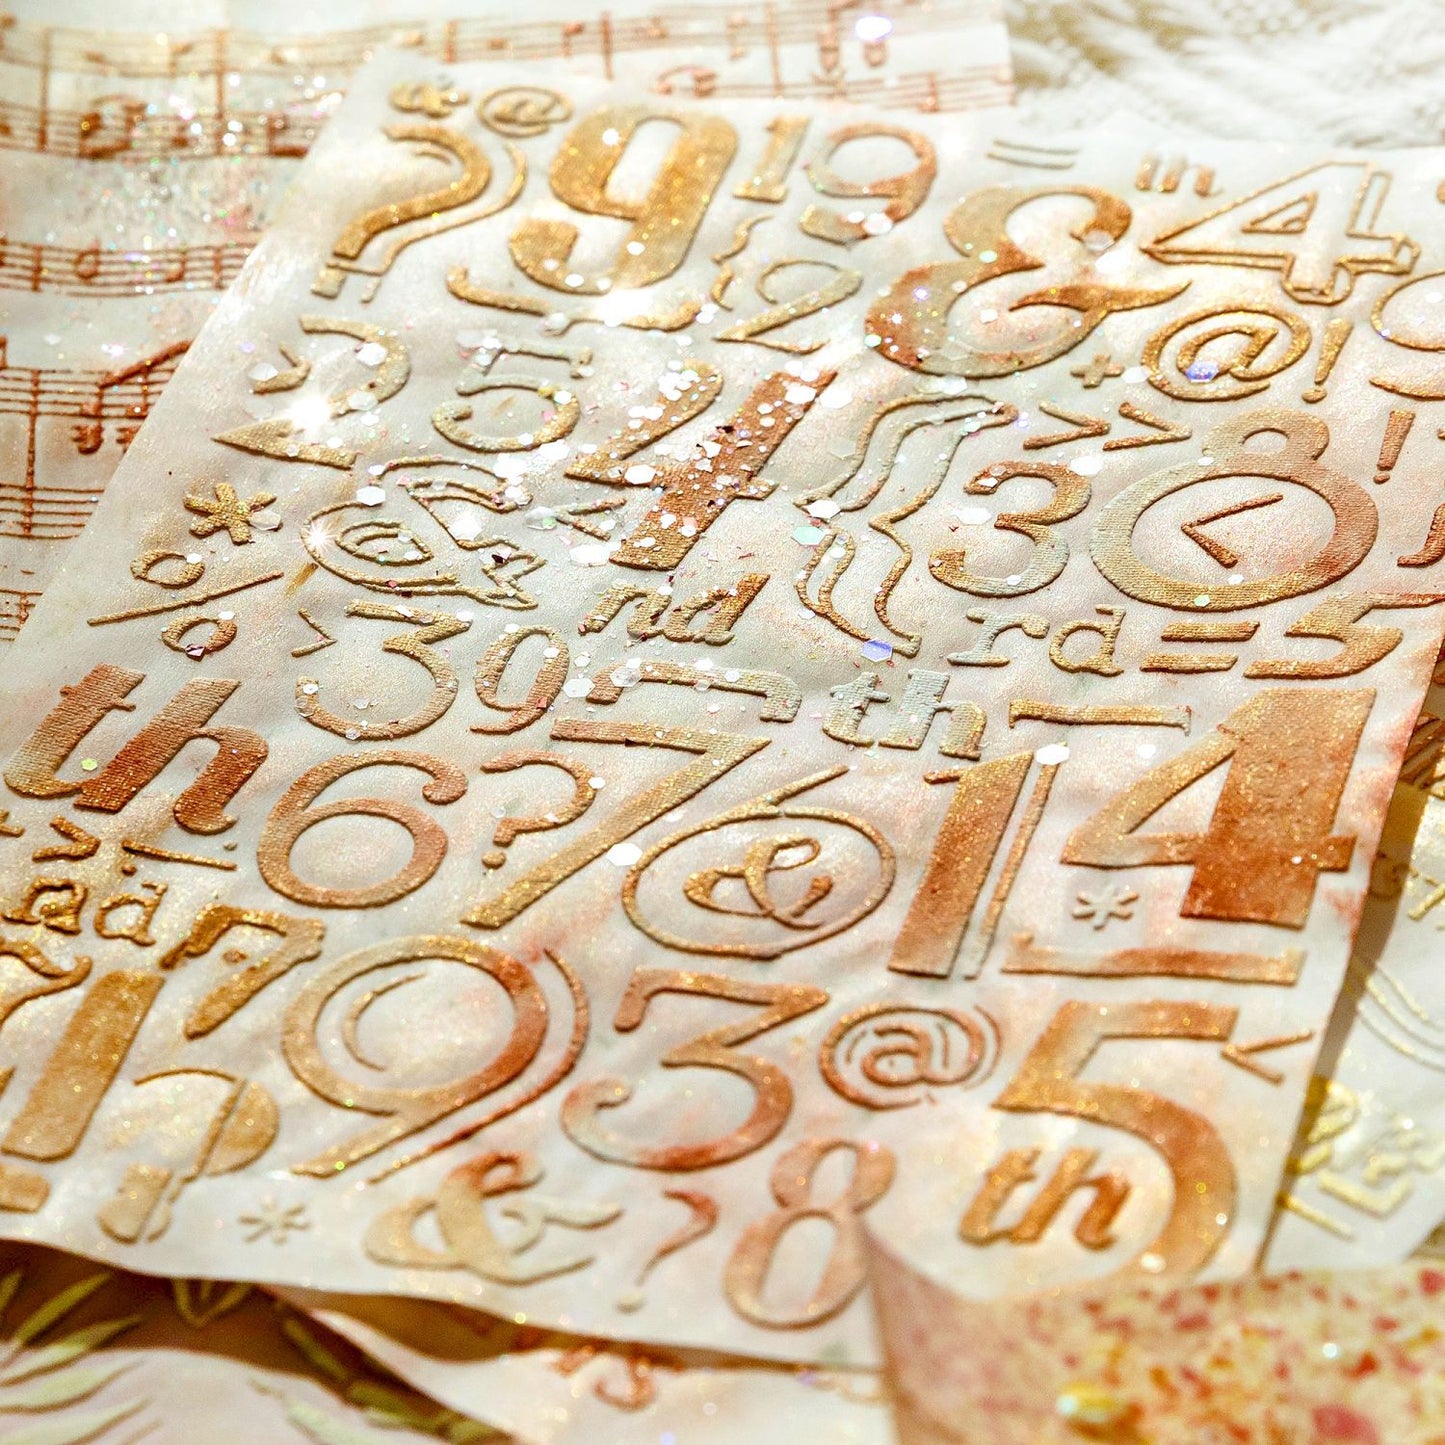 & @
? 9 1 9 = th 4
2 & + @ !
2 5 4 > > 8 !
* @ < 3 <
% > 3 9 nd rd = 5
th 6 ? 7 th
& 1 4
> ad 7 *
9 3 @ 5 <
! ? th
* & ? 8